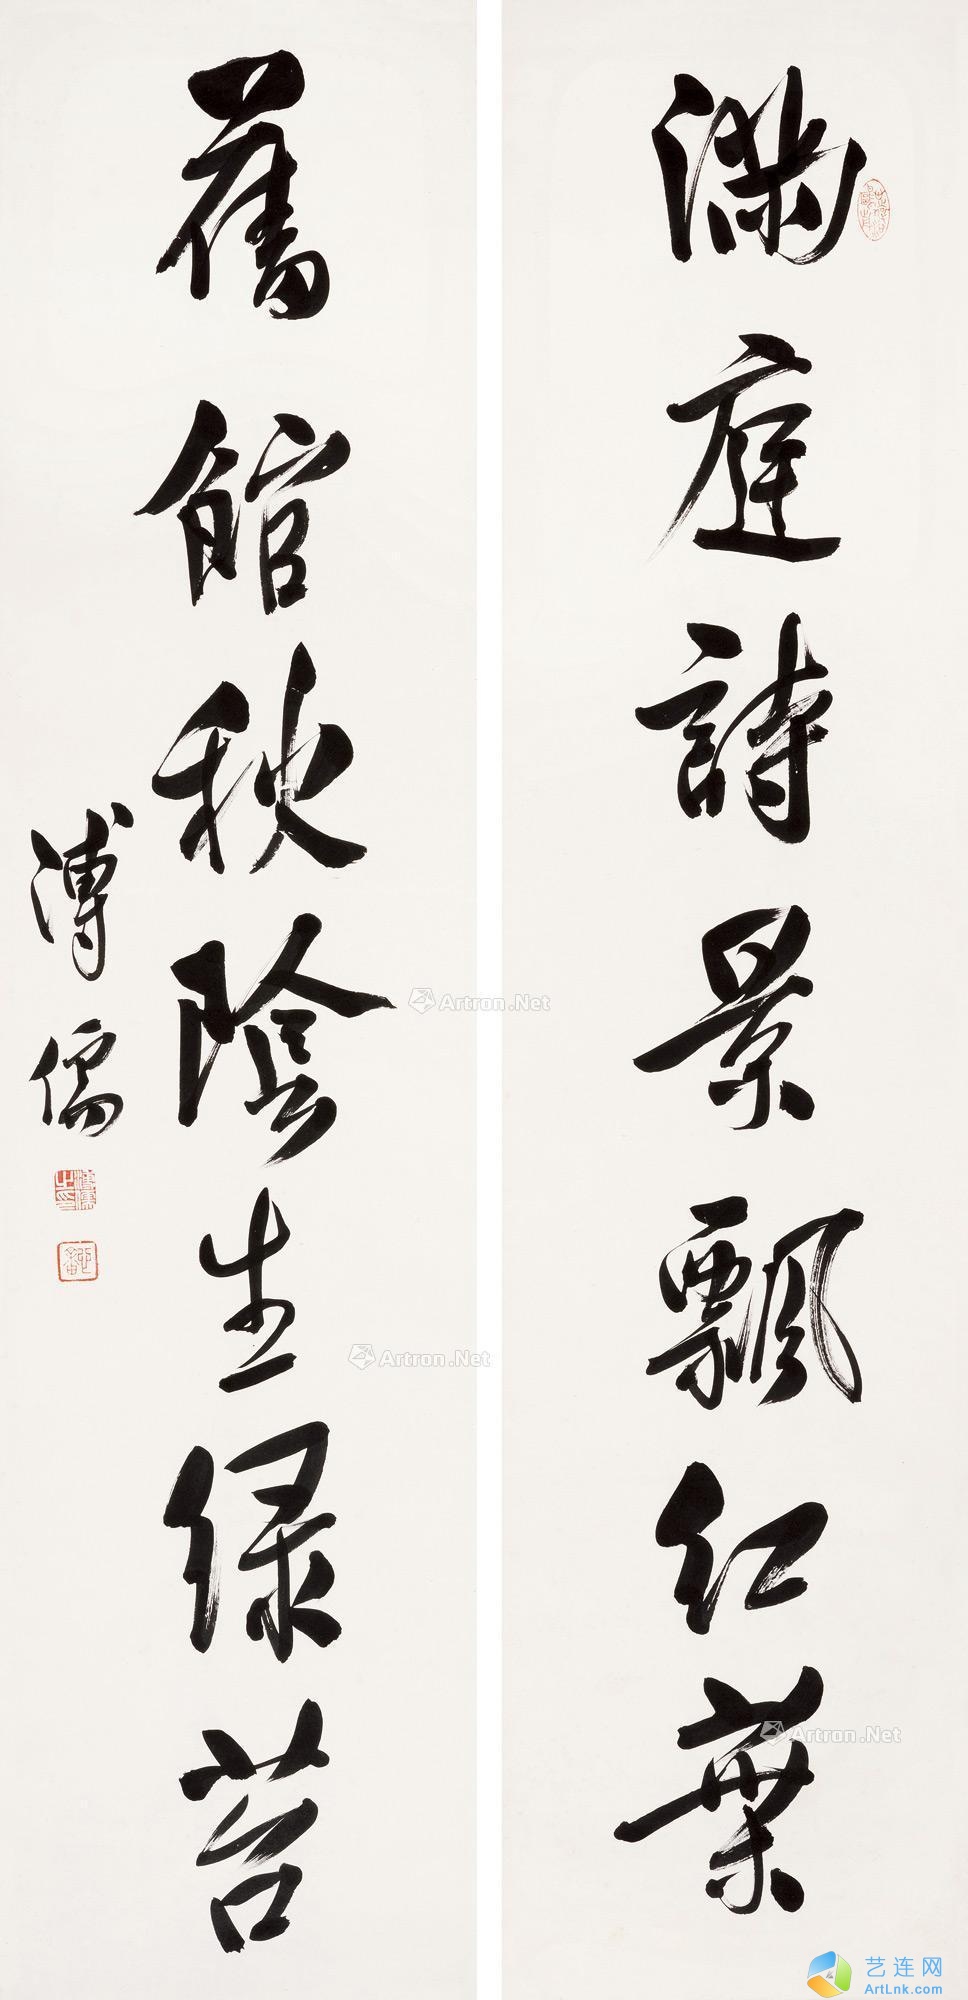 滿庭詩景飄紅葉
舊館秋陰生緑苔
溥儒
溥儒之印
Artron.Net
Artron.Net
Artron.Net
艺连网
ArtLnk.com